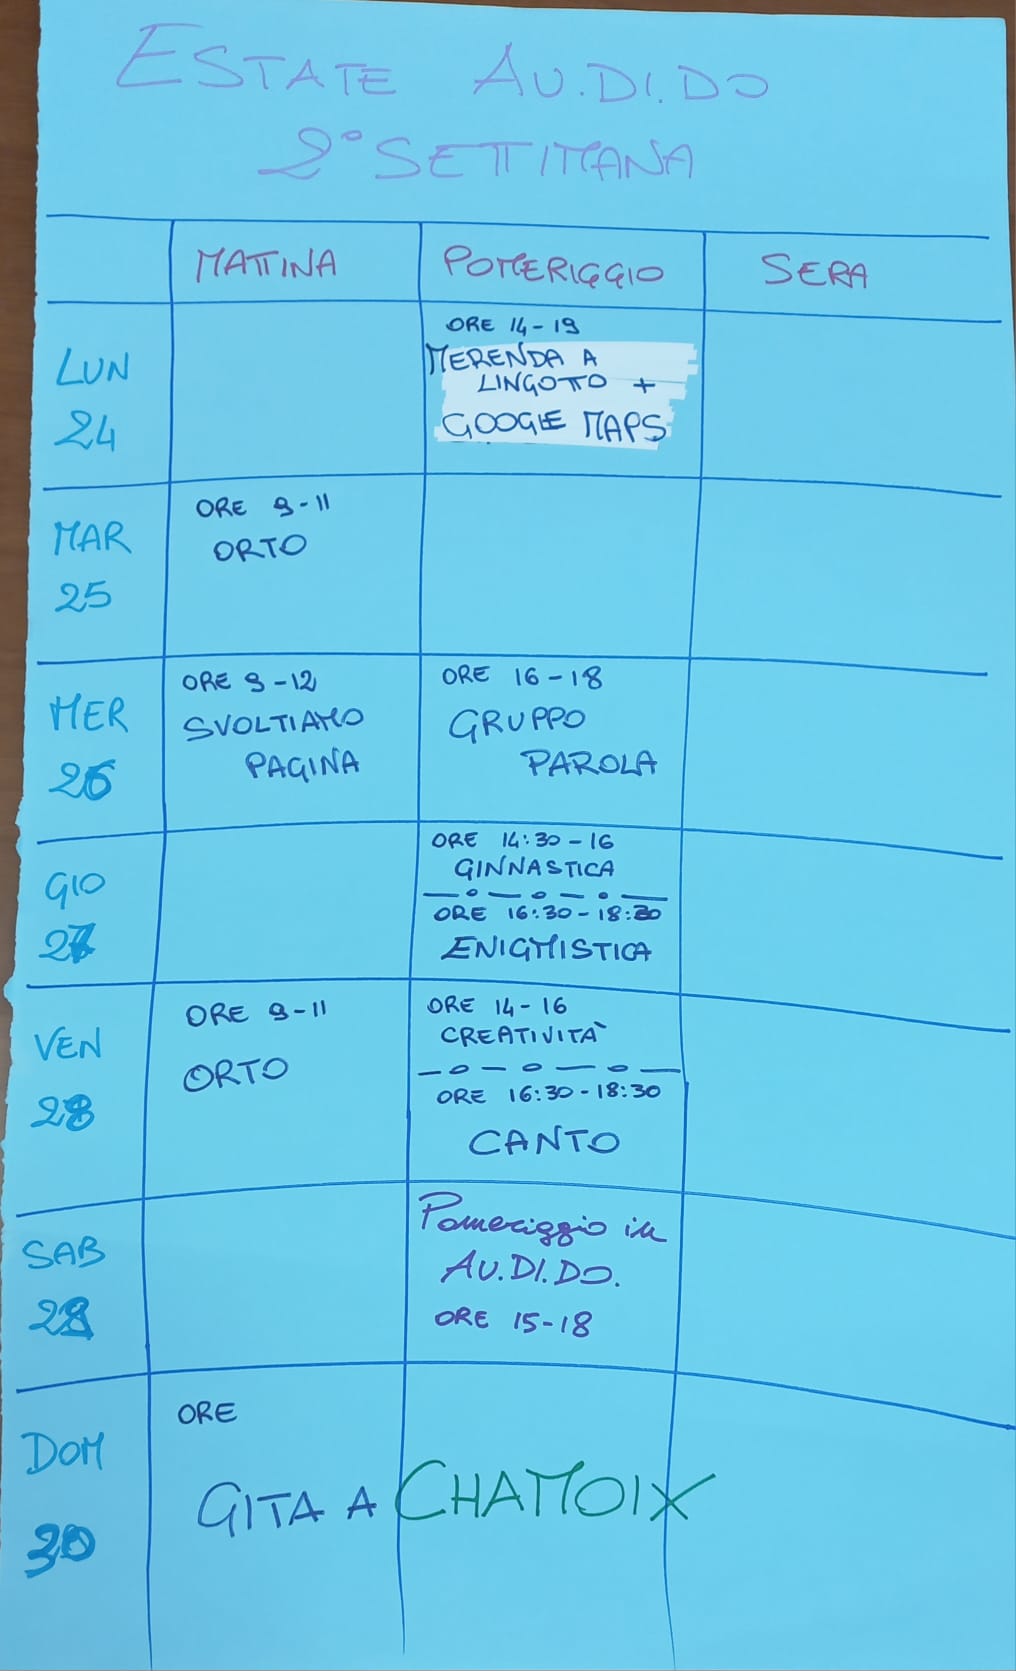 ESTATE AU.DI.DO
2° SETTIMANA
MATTINA POMERIGGIO SERA
LUN
24
ORE 14-19
MERENDA A
LINGOTTO +
GOOGLE MAPS
MAR
25
ORE 9-11
ORTO
MER
26
ORE 9-12
SVOLTIAMO
PAGINA
ORE 16-18
GRUPPO
PAROLA
GIO
27
ORE 14:30-16
GINNASTICA
ORE 16:30-18:30
ENIGMISTICA
VEN
28
ORE 9-11
ORTO
ORE 14-16
CREATIVITÀ
ORE 16:30-18:30
CANTO
SAB
Pomeriggio in
AU.DI.DO.
ORE 15-18
DOM
30
ORE
GITA A CHAMOIX